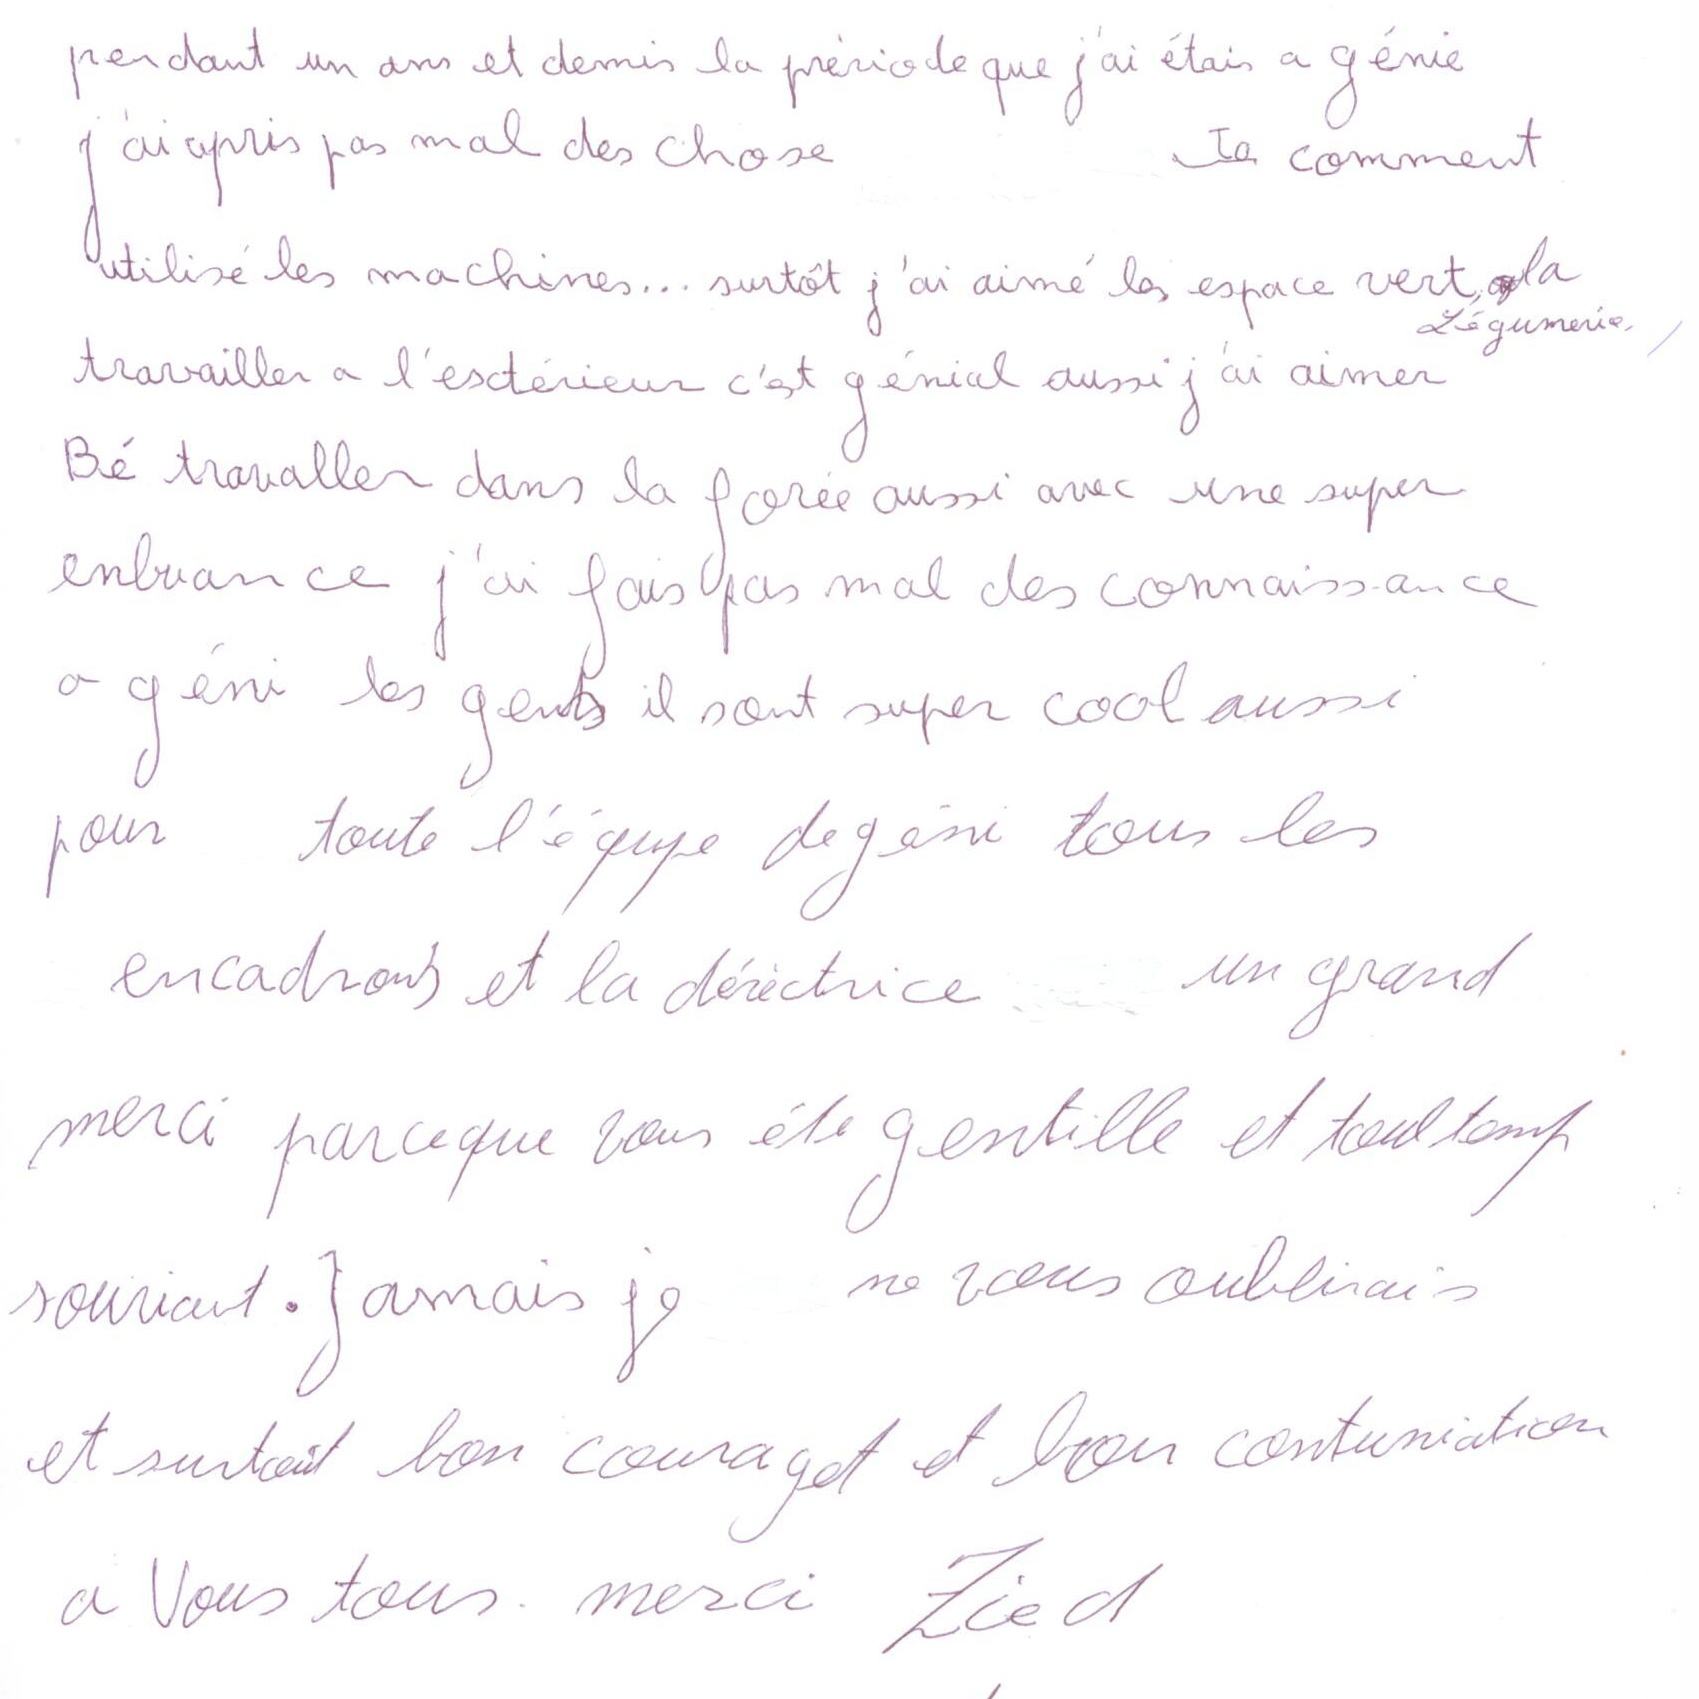 pendant un ans et demis la prèriode que j'ai étais a génie
j'ai apris pas mal des chose comment
utilisé les machines... surtôt j'ai aimé les espace vert, la
Légumerie,
travailler a l'esctérieur c'est génial aussi j'ai aimer
Bé travaller dans la forée aussi avec une super
enbuance j'ai fais pas mal des connaissance
a géni les gents il sont super cool aussi
pour toute l'équpe de géni tous les
encadrons et la dérèctrice un grand
merci parceque vous éte gentille et toultemp
souriant. Jamais je ne vous oublirais
et surtoût bon couraget et bon contuniation
a Vous tous. merci Zied